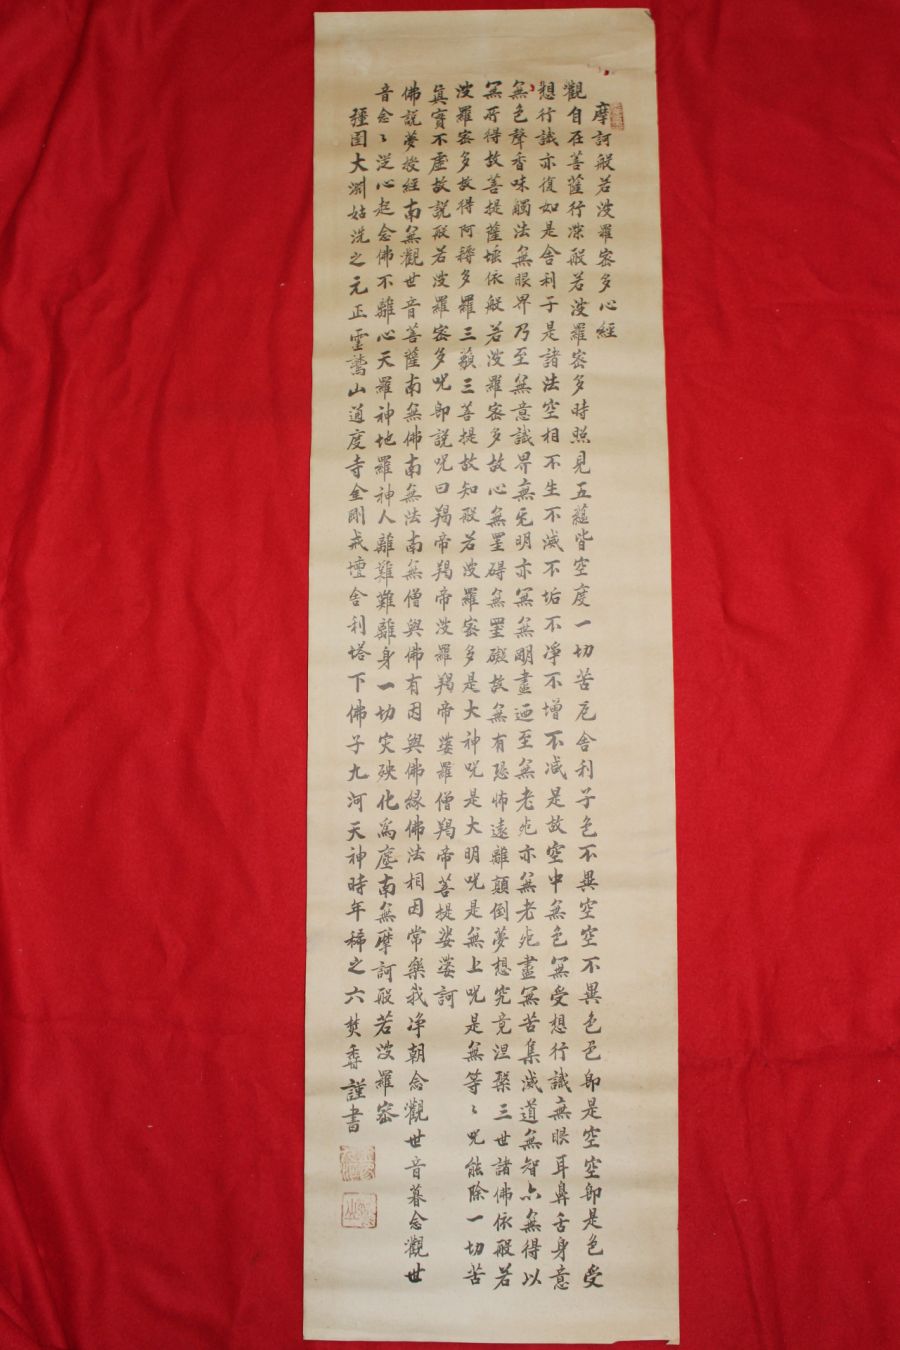 摩訶般若波羅密多心經
觀自在菩薩行深般若波羅密多時照見五蘊皆空度一切苦厄舍利子色不異空空不異色色卽是空空卽是色受
想行識亦復如是舍利子是諸法空相不生不滅不垢不淨不增不减是故空中無色無受想行識無眼耳鼻舌身意
無色聲香味觸法無眼界乃至無意識界無无明亦無無明盡迺至無老死亦無老死盡無苦集滅道無智亦無得以
無所得故菩提薩埵依般若波羅密多故心無罣碍無罣礙故無有恐怖遠離顚倒夢想究竟涅槃三世諸佛依般若
波羅密多故得阿耨多羅三藐三菩提故知般若波羅密多是大神呪是大明呪是無上呪是無等〻呪能除一切苦
眞實不虛故說般若波羅密多呪卽說呪曰羯帝羯帝波羅羯帝婆羅僧羯帝菩提娑婆訶
佛說夢授經南無觀世音菩薩南無佛南無法南無僧與佛有因與佛緣佛法相因常樂我净朝念觀世音暮念觀世
音念〻從心起念佛不離心天羅神地羅神人離難難離身一切灾殃化爲塵南無摩訶般若波羅密
彊圉大淵姑洗之元正靈鷲山通度寺金剛戒壇舍利塔下佛子九河天神時年稀之六焚香謹書